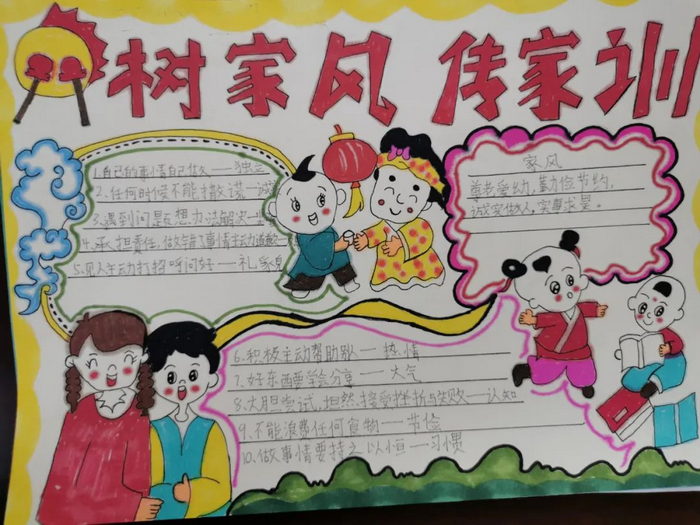 树家风 传家训
1.自己的事情自己做——独立
2.任何时候不能撒谎——诚
3.遇到问题想办法解决
4.承担责任,做错事情主动道歉
5.见人主动打招呼问好——礼貌
家风
尊老爱幼,勤俭节约,
诚实做人,实事求是。
6.积极主动帮助别人——热情
7.好东西要学会分享——大气
8.大胆尝试,坦然接受挫折与失败——认知
9.不能浪费任何食物——节俭
10.做事情要持之以恒——习惯